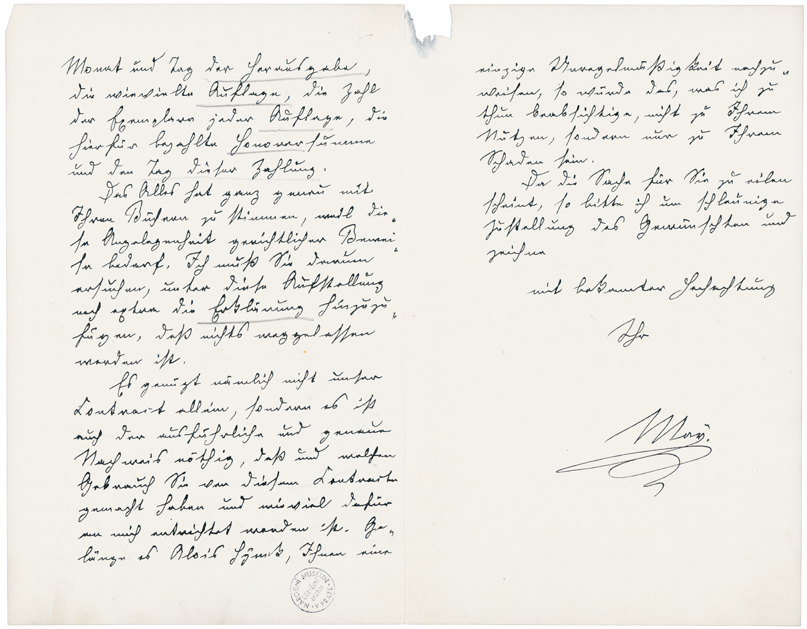 Monat und Tag der Herausgabe,
die wievielte Auflage, die Zahl
der Exemplare jeder Auflage, die
hierfür bezahlte Honorarsumme
und den Tag dieser Zahlung.
Das Alles hat ganz genau mit
Ihren Büchern zu stimmen, weil die-
se Angelegenheit gerichtlicher Bewei-
se bedarf. Ich muß Sie darum
ersuchen, unter diese Aufstellung
noch extra die Erklärung hinzuzu-
fügen, daß nichts weggelassen
worden ist.
Es genügt nämlich nicht unser
Contract allein, sondern es ist
auch der ausführliche und genaue
Nachweis nöthig, daß und welchen
Gebrauch Sie von diesem Contracte
gemacht haben und wieviel dafür
an mich entrichtet worden ist. Ge-
länge es Alois Hynek, Ihnen eine
einzige Unregelmäßigkeit nachzu-
weisen, so würde das, was ich zu
thun beabsichtige, nicht zu Ihrem
Nutzen, sondern nur zu Ihrem
Schaden sein.
Da die Sache für Sie zu eilen
scheint, so bitte ich um schleunige
Zustellung des Gewünschten und
zeichne
mit bekannter Hochachtung
Ihr
May.